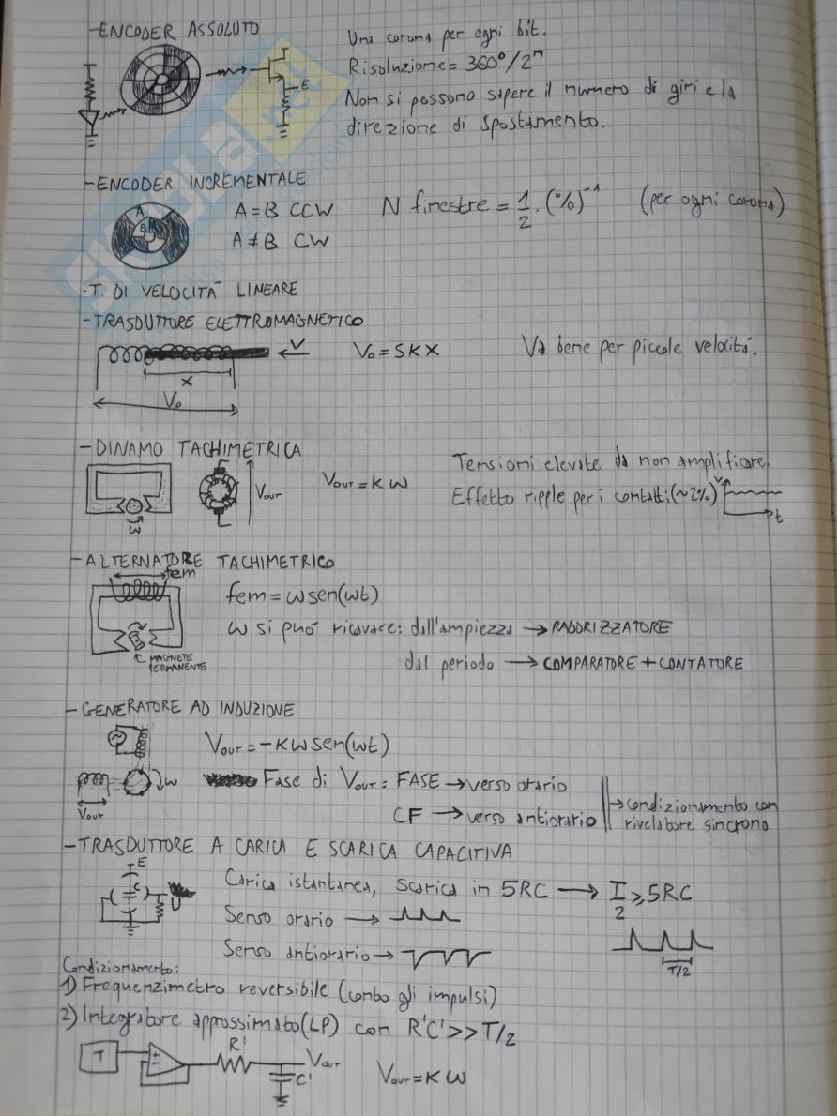 -ENCODER ASSOLUTO
Una corona per ogni bit.
Risoluzione = 360°/2ⁿ
E
Non si possono sapere il numero di giri e la
direzione di spostamento.
-ENCODER INCREMENTALE
A
B
A = B CCW
A ≠ B CW
N finestre = 1/2 · (%)⁻¹ (per ogni corona)
· T. DI VELOCITÀ LINEARE
-TRASDUTTORE ELETTROMAGNETICO
V
x
V₀
V₀ = SKX
Va bene per piccole velocità.
-DINAMO TACHIMETRICA
Vour
ω
Vour = K ω
Tensioni elevate da non amplificare.
Effetto ripple per i contatti (~2%)
V
t
-ALTERNATORE TACHIMETRICO
fem
MAGNETE
PERMANENTE
fem = ω sen(ωt)
ω si può ricavare: dall'ampiezza → RADDRIZZATORE
dal periodo → COMPARATORE + CONTATORE
-GENERATORE AD INDUZIONE
ω
Vour
Vour = -K ω sen(ωt)
Fase di Vour: FASE → verso orario
CF → verso antiorario
→ condizionamento con
rivelatore sincrono
-TRASDUTTORE A CARICA E SCARICA CAPACITIVA
+E
C
U
Carica istantanea, scarica in 5RC → T/2 ⩾ 5RC
Senso orario →
Senso antiorario →
T/2
Condizionamento:
1) Frequenzimetro reversibile (conto gli impulsi)
2) Integratore approssimato (LP) con R'C' >> T/2
T
R'
C'
Vour
Vour = K ω